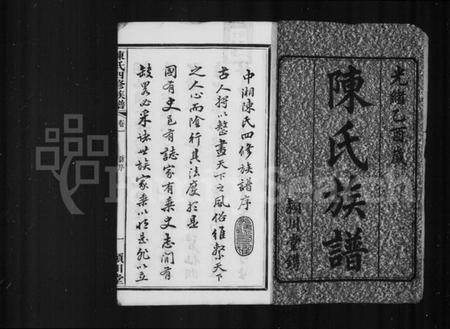 光緒乙酉歲
陳氏族譜
潁川堂鐫
中湘陳氏四修族譜序
古人將以整畫天下之風俗維繫天下
之人心而陰行其法度於是
國有史邑有誌家有乘史志間有
缺畧必采諸世族家乘以
陳氏四修族譜
卷一
一
潁川堂